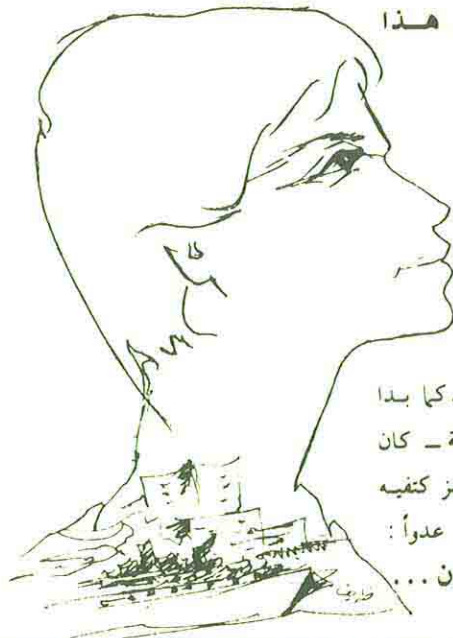 هذا
كما بدا
ة ــ كان
ز كتفيه
عدواً :
ن ...